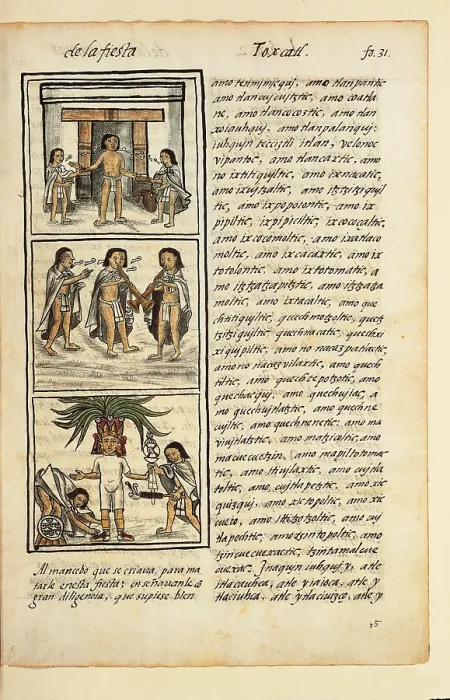 de la fiesta
Toxcatl.
fo. 31.
amo tenmimicqui, amo tlanpantic
amo tlancujcujtztic, amo coatla
ne, amo tlancocoztic, amo tlan
xoiauhqui, amo tlanpalanqui:
iuhqujn tecciztli itlan, velonoc
vipantoc, amo tlancaxtic, amo
no ixtitiquiltic, amo ixnacatic,
amo
tic, amo ixpopoiontic, amo ix
pipiltic, ixpipiciltic, ixcococaltic,
amo ixcocomoltic, amo ixatlaco
moltic, amo ixcacaxtic, amo ix
totolontic, amo ixtotomatic, a
mo
moltic, amo ixtacaltic, amo que
chtitiquiltic, quechmotzoltic, quech
tzitziquiltic, quechnacatic, quechxi
xiquipiltic, amo no nacazpatlactic,
amo no nacazvilaxtic, amo quech
tiltic, amo quechtepotzotic, amo
quechacqui, amo quechujac, a
mo quechvijtlatztic, amo quechne
cujltic, amo quechnenetic, amo ma
viujtlatztic, amo matzicaltic, amo
macuecuetzin, amo mapiltotomac
tic, amo itivilaxtic, amo cujtla
toltic, amo cujtlapetztic, amo xic
quizqui, amo xictopoltic, amo xic
cueio, amo itizotzoltic, amo cuj
tlapechtic, amo tzintopoltic, amo
tzincuecuexactic, tzintamalcue
cuexac. Jnaquin iuhquj y, atle
itlaciauhca, atle yiaioca, atle y
tlaciuhca, atle ytlaciuizco, atle y
Al mancebo que se criaua, para ma
tarle enesta fiesta; enseñauanle cõ
gran diligencia, que supiese bien
35